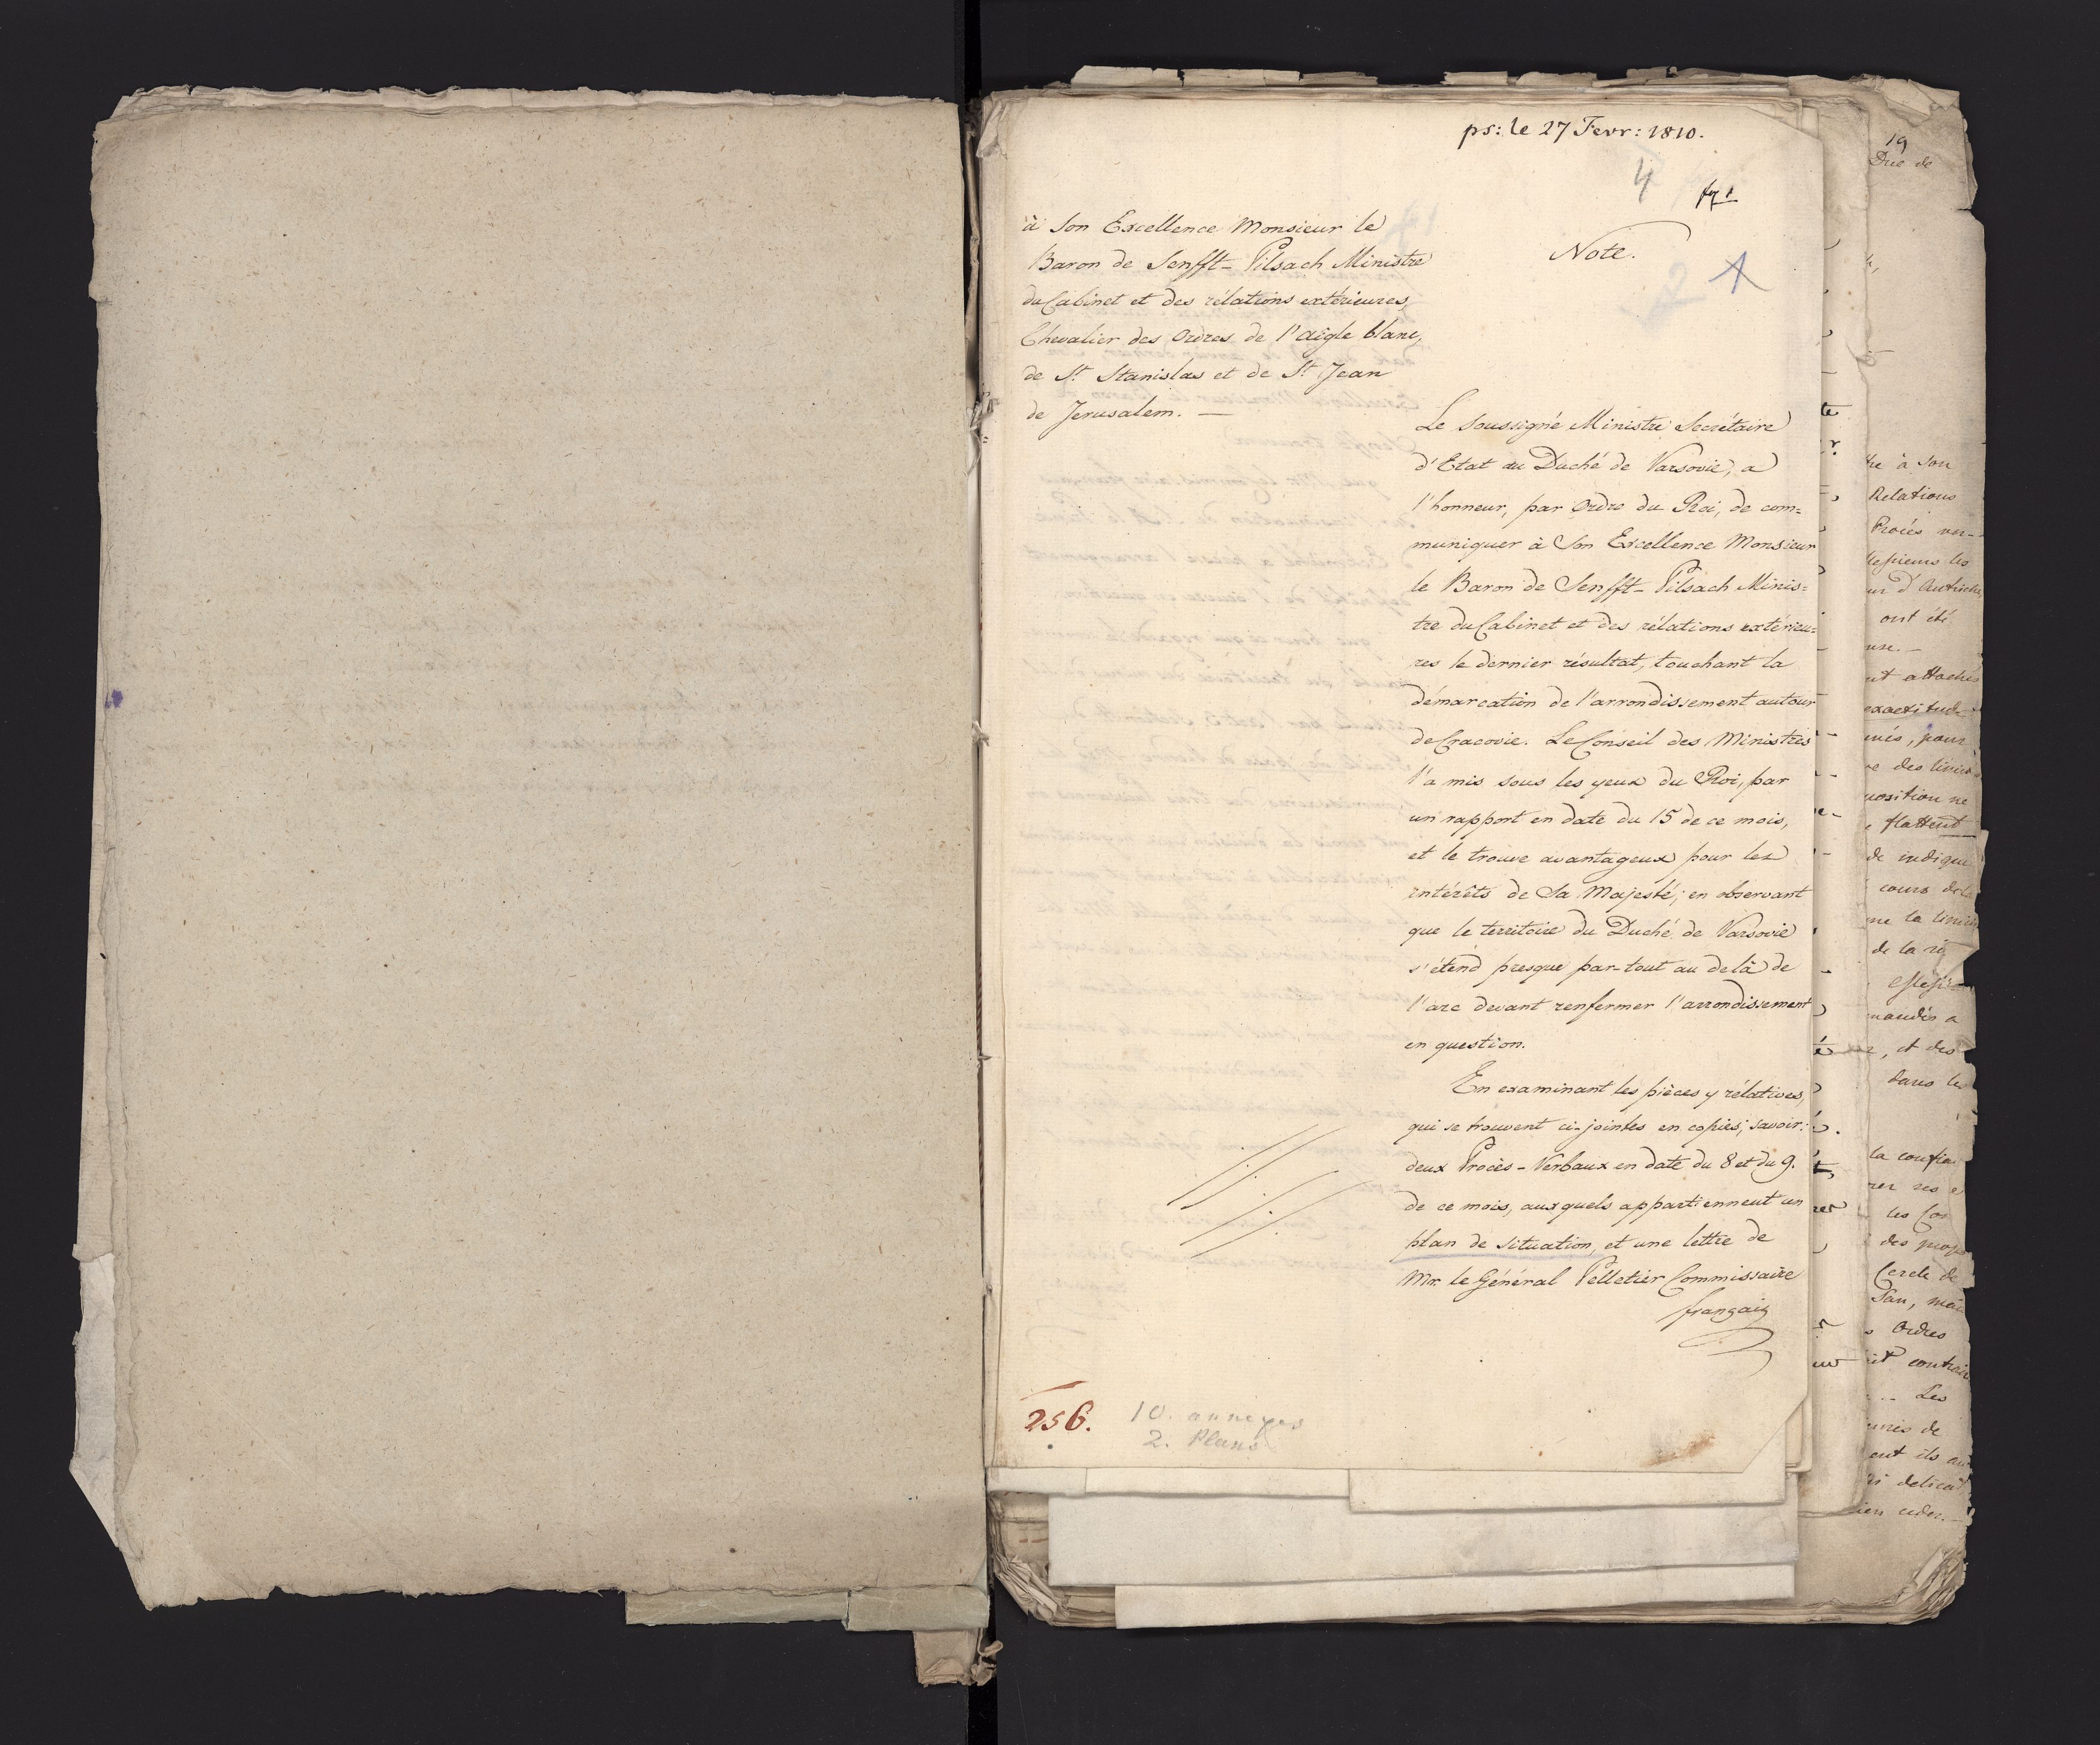 ps: le 27 Fevr: 1810.
4
1
à Son Excellence Monsieur le
Baron de Senfft-Pilsach Ministre
du Cabinet et des rélations extérieures,
Chevalier des Ordres de l'aigle blanc,
de St. Stanislas et de St. Jean
de Jerusalem. —
Note.
2 1
Le soussigné Ministre Secrétaire
d'Etat du Duché de Varsovie, a
l'honneur, par Ordre du Roi, de com=
muniquer à Son Excellence Monsieur
le Baron de Senfft-Pilsach Minis=
tre du Cabinet et des rélations extérieu=
res le dernier résultat, touchant la
démarcation de l'arrondissement autour
de Cracovie. Le Conseil des Ministres
l'a mis sous les yeux du Roi, par
un rapport en date du 15 de ce mois,
et le trouve avantageux pour les
intérêts de Sa Majesté; en observant
que le territoire du Duché de Varsovie
s'étend presque par-tout au delà de
l'arc devant renfermer l'arrondissement
en question.
En examinant les pièces y rélatives,
qui se trouvent ci-jointes en copies; savoir:
deux Procès-Verbaux en date du 8 et du 9.
de ce mois, auxquels appartiennent un
plan de situation, et une lettre de
Mr. le Général Pelletier Commissaire
français
256.
10. annexes
2. Plans
19
Duc de
à son
Relations
Procés ver-
les
d'Autriche,
ont été
attachés
exactitude
, pour
position ne
flattent
de indique
cours de la
de la
, et des
dans les
la confia
les
des
Cercle de
San,
Ordres
Les
de
ils